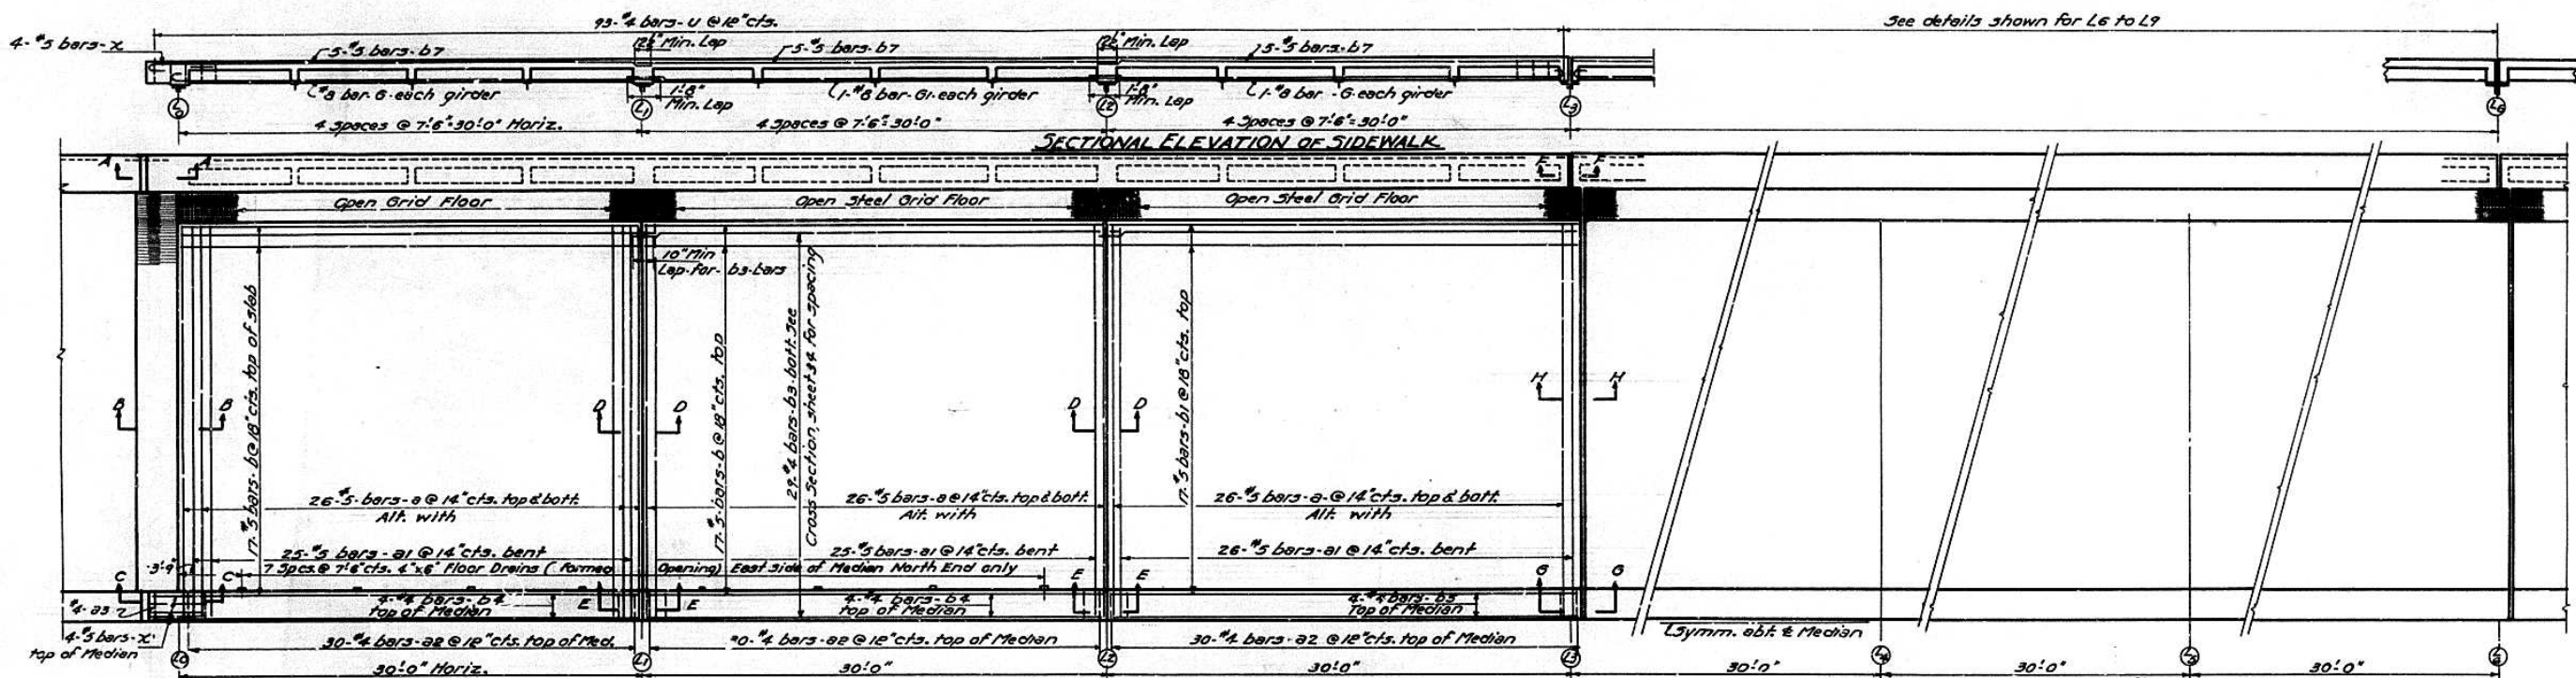 93-#4 bars-U @ 12"cts.
See details shown for L6 to L9
4-#5 bars-x
5-#5 bars-b7
Min. Lap
5-#5 bars-b7
Min. Lap
5-#5 bars-b7
#8 bar-G-each girder
1'-8"
Min. Lap
1-#8 bar-G1-each girder
1'-8"
Min. Lap
1-#8 bar-G-each girder
L0
L1
L2
L3
L6
4 Spaces @ 7'-6"=30'-0" Horiz.
4 Spaces @ 7'-6"=30'-0"
4 Spaces @ 7'-6"=30'-0"
SECTIONAL ELEVATION OF SIDEWALK
A A
F F
Open Grid Floor
Open Steel Grid Floor
Open Steel Grid Floor
10" Min
Lap-for-b3-bars
17-#5 bars-b@18"cts. top of slab
17-#5-bars-b @ 18"cts. top
29-#4 bars-b3-bott. See
Cross Section, sheet 34 for spacing
17-#5 bars-b1@18"cts. top
B B
D D
D D
H H
26-#5-bars-a @ 14"cts. top & bott.
Alt. with
26-#5 bars-a@14"cts. top & bott.
Alt. with
26-#5 bars-a-@14"cts. top & bott.
Alt. with
25-#5 bars-a1 @ 14"cts. bent
25-#5 bars-a1@14"cts. bent
26-#5 bars-a1 @ 14"cts. bent
3'-9"
7 Spcs.@ 7'-6"cts. 4"x6" Floor Drains (Formed Opening) East Side of Median North End only
C C
E E
E E
G G
4-#4 bars-b4
top of Median
4-#4 bars-b4
top of Median
4-#4 bars-b5
Top of Median
4-#5 bars-x
top of Median
30-#4 bars-a2 @ 12"cts. top of Med.
30-#4 bars-a2 @ 12"cts. top of Median
30-#4 bars-a2 @ 12"cts. top of Median
Symm. abt. ℄ Median
L0
L1
L2
L3
L4
L5
L6
30'-0" Horiz.
30'-0"
30'-0"
30'-0"
30'-0"
30'-0"